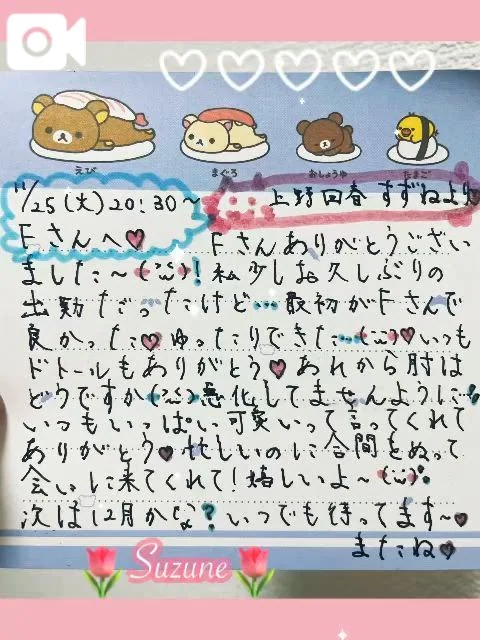 えび
まぐろ
おしょうゆ
たまご
11/25(火)20:30～
上野回春 すずねより
Fさんへ♥
Fさんありがとうござい
ました～(˙꒳˙)!私少しお久しぶりの
出勤だったけど…最初がFさんで
良かった♥ゆったりできた…(˙꒳˙)♥いつも
ドトールもありがとう♥あれから肘は
どうですか(˙꒳˙)悪化してませんように!
いつもいっぱい可愛いって言ってくれて
ありがとう♥忙しいのに合間をぬって
会いに来てくれて!嬉しいよ～(˙꒳˙)
次は12月かな?いつでも待ってます～♥
またね♥
Suzune